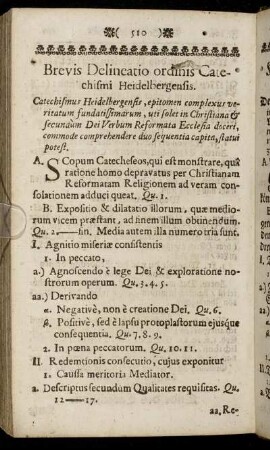 ( 510 )
Brevis Delineatio ordinis Cate-
chismi Heidelbergensis.
Catechismus Heidelbergensis, epitomen complexus ve-
ritatum fundatissimarum, uti solet in Christiana &
secundùm Dei Verbum Reformata Ecclesia doceri,
commode comprehendere duo sequentia capita, statui
potest.
A. SCopum Catecheseos, qui est monstrare, quâ
ratione homo depravatus per Christianam
Reformatam Religionem ad veram con-
solationem adduci queat. Qu. 1.
B. Expositio & dilatatio illorum, quæ medio-
rum vicem præstant, ad finem illum obtinendum.
Qu. 2.—fin. Media autem illa numero tria sunt.
I. Agnitio miseriæ consistentis
1. In peccato,
a.) Agnoscendo è lege Dei & exploratione no-
strorum operum. Qu. 3. 4. 5.
aa.) Derivando
α. Negativè, non è creatione Dei. Qu. 6.
β. Positivè, sed è lapsu protoplastorum ejusque
consequentia. Qu. 7. 8. 9.
2. In pœna peccatorum. Qu. 10. 11.
II. Redemtionis consecutio, cujus exponitur
1. Causa meritoria Mediator.
a. Descriptus secundum Qualitates requisitas. Qu.
12—17.
aa. Re-